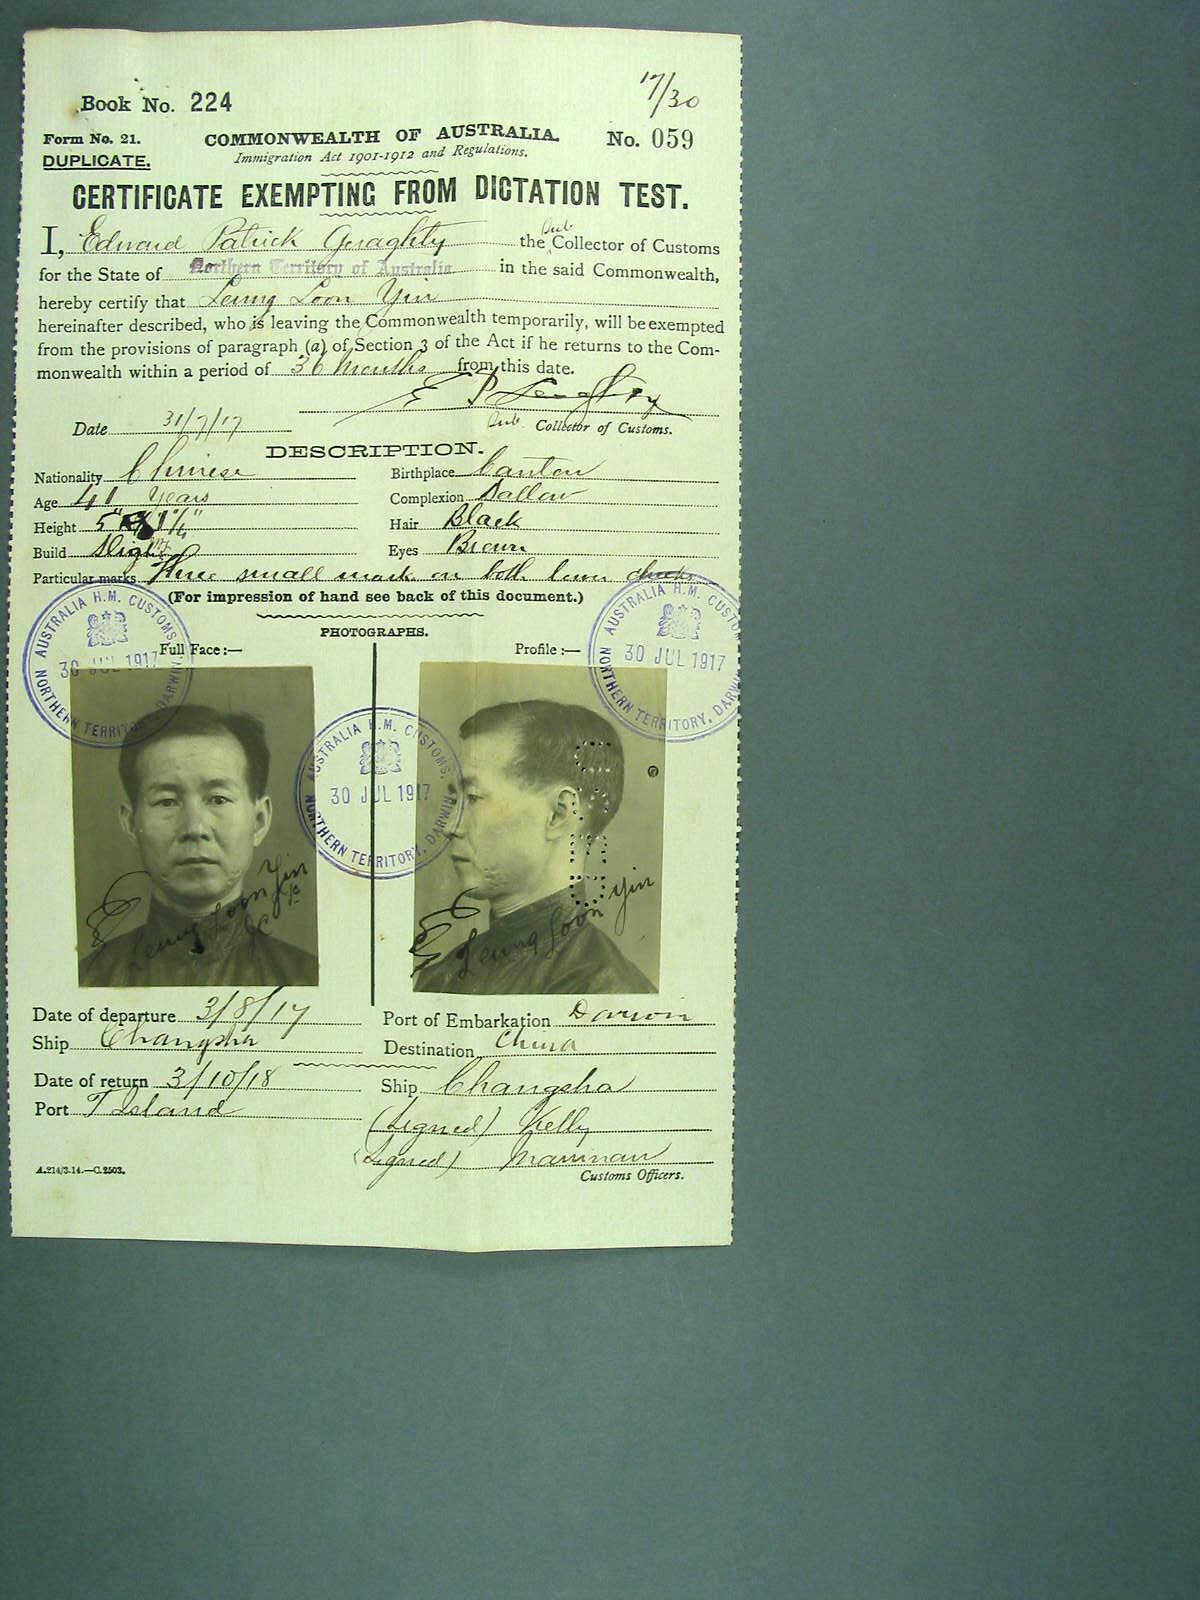 17/30
Book No. 224
Form No. 21. COMMONWEALTH OF AUSTRALIA. No. 059
DUPLICATE. Immigration Act 1901-1912 and Regulations.
CERTIFICATE EXEMPTING FROM DICTATION TEST.
I, Edward Patrick Geraghty the Sub Collector of Customs
for the State of Northern Territory of Australia in the said Commonwealth,
hereby certify that Leung Loon Yin
hereinafter described, who is leaving the Commonwealth temporarily, will be exempted
from the provisions of paragraph (a) of Section 3 of the Act if he returns to the Com-
monwealth within a period of 36 Months from this date.
E P Geraghty
Date 31/7/17 Sub. Collector of Customs.
DESCRIPTION.
Nationality Chinese Birthplace Canton
Age 41 Years Complexion Sallow
Height 5" Hair Black
Build Slight Eyes Brown
Particular marks Three small mark on both lower cheeks
(For impression of hand see back of this document.)
PHOTOGRAPHS.
Full Face :— Profile :—
AUSTRALIA H.M. CUSTOMS, 30 JUL 1917 NORTHERN TERRITORY, DARWIN.
AUSTRALIA H.M. CUSTOMS, 30 JUL 1917 NORTHERN TERRITORY, DARWIN.
AUSTRALIA H.M. CUSTOMS, 30 JUL 1917 NORTHERN TERRITORY, DARWIN.
Leung Loon Yin
Leung Loon Yin
Date of departure 3/8/17 Port of Embarkation Darwin
Ship Changsha Destination China
Date of return 3/10/18 Ship Changsha
Port T Island (Signed) Kelly
(Signed)
A.214/3.14.—C.2503. Customs Officers.